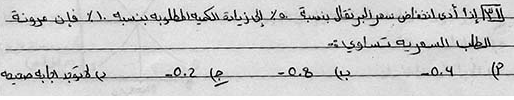 ٣٨) إذا أدى انخفاض سعر البرتقال بنسبة ٥٠٪ إلى زيادة الكمية المطلوبه بنسبه ١٠٪ فإن مرونة
الطلب السعريه تساوي :-
أ) -0.4 ب) -0.8 ج) -0.2 د) لا توجد اجابه صحيحه